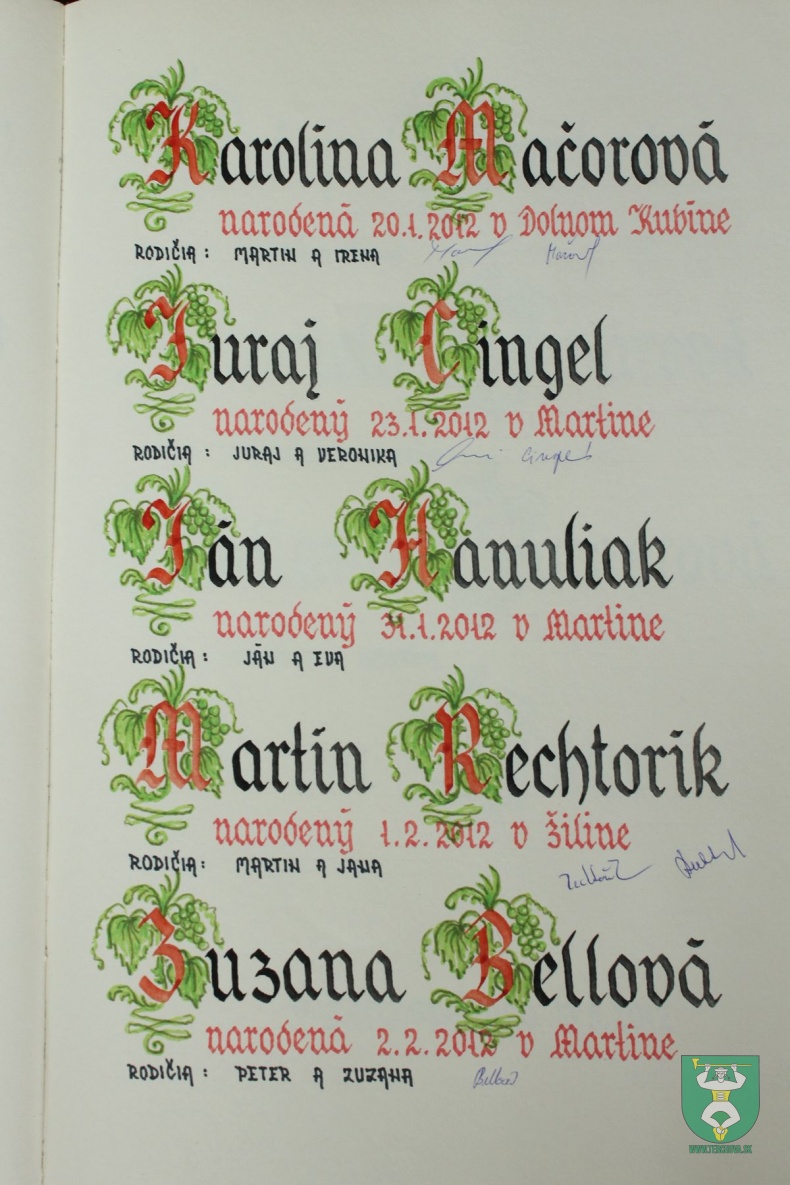 Karolína Mačorová
narodená 20.1.2012 v Dolnom Kubíne
RODIČIA: MARTIN A IRENA
Juraj Cingel
narodený 23.1.2012 v Martine
RODIČIA: JURAJ A VERONIKA
Ján Hanuliak
narodený 31.1.2012 v Martine
RODIČIA: JÁN A EVA
Martin Rechtorík
narodený 1.2.2012 v Žiline
RODIČIA: MARTIN A JANA
Zuzana Bellová
narodená 2.2.2012 v Martine
RODIČIA: PETER A ZUZANA
WWW.TERCHOVA.SK